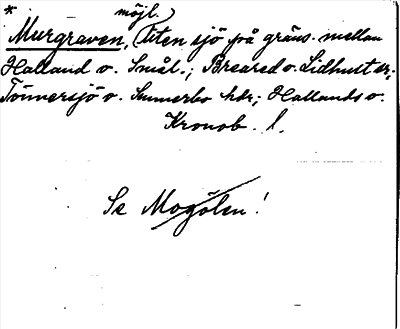 * möjl.
Murgraven, (liten sjö på gräns. mellan
Halland o. Smål.; Breared o. Lidhult sn;
Tönnersjö o. Sunnerbo hdr; Hallands o.
Kronob. l.
Se Mogölen!